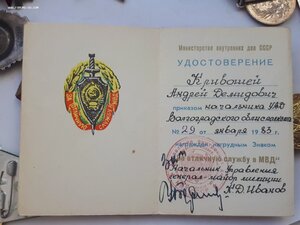 Министерство внутренних дел СССР
УДОСТОВЕРЕНИЕ
Кривошей
Андрей Демидович
приказом начальника УВД
Волгоградского облисполкома
№ 29 от января 1983 г.
награжден нагрудным Знаком
"За отличную службу в МВД"
Начальник Управления
генерал-майор милиции
К.Д. Иванов